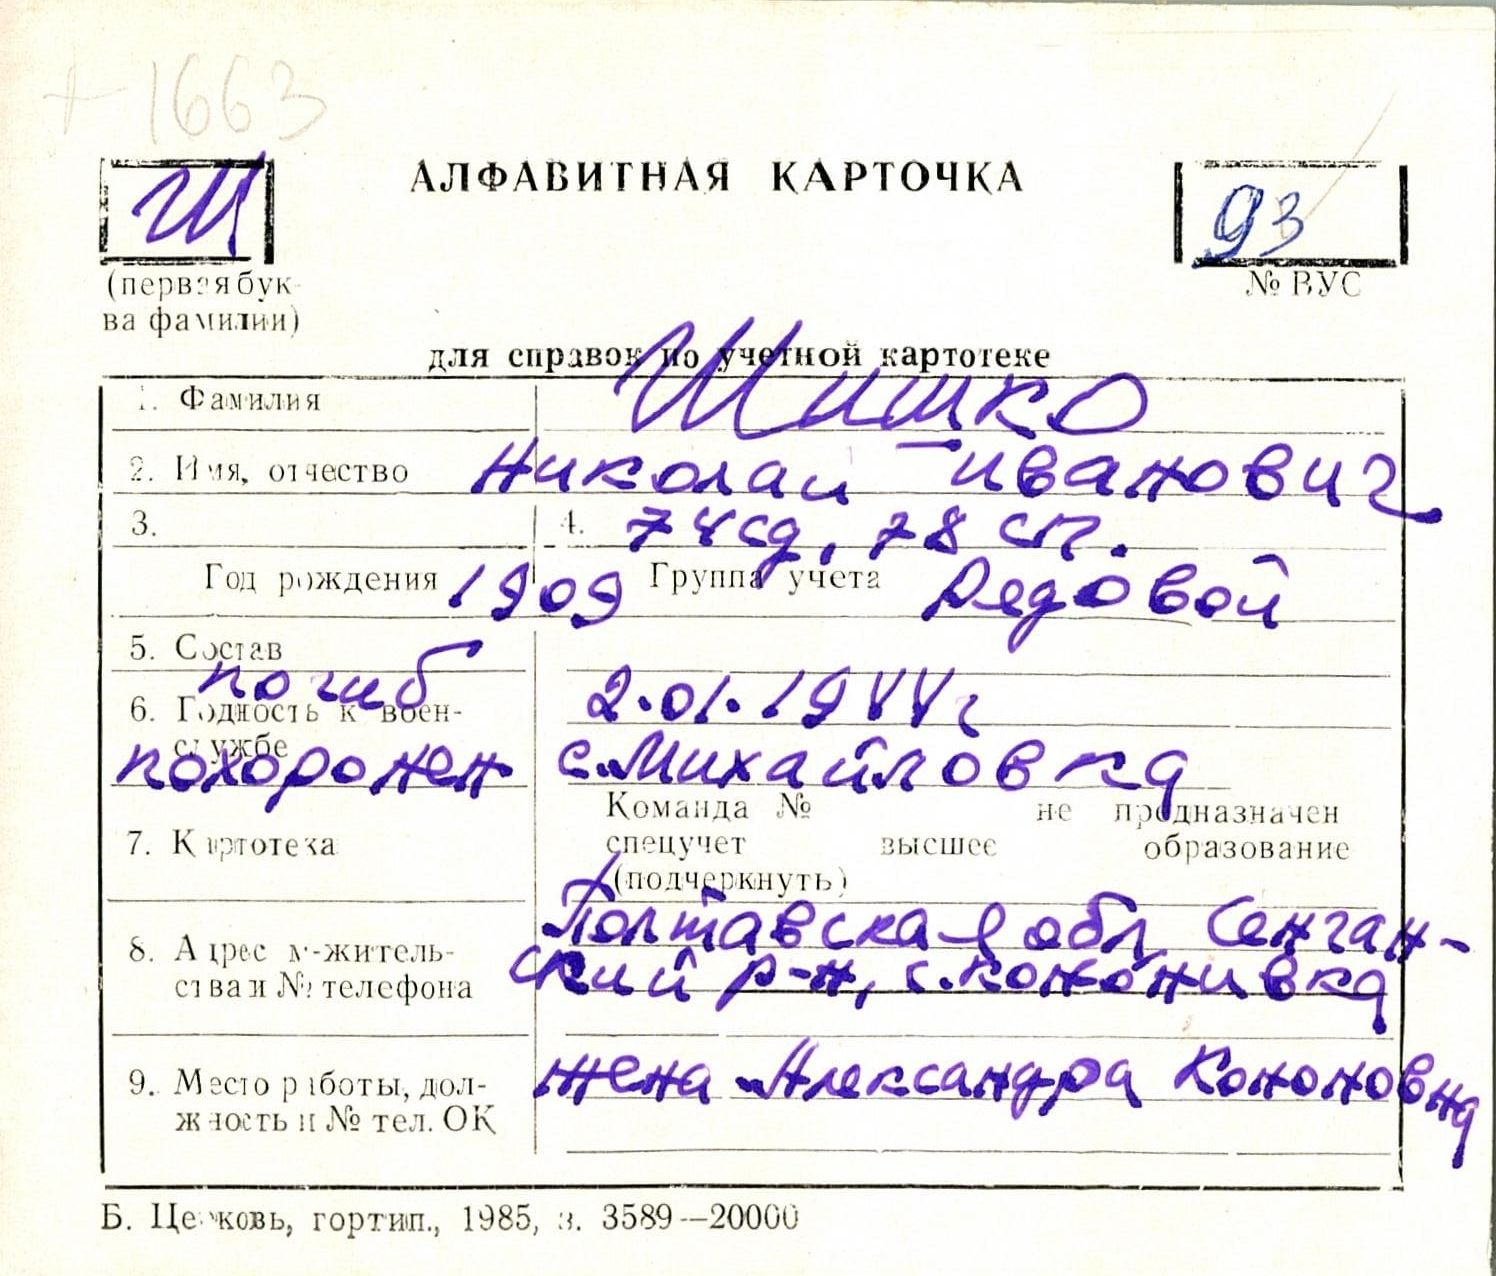 +1663
Ш
АЛФАВИТНАЯ КАРТОЧКА
93
(первая бук-
ва фамилии)
№ ВУС
для справок по учетной картотеке
1. Фамилия Шишко
2. Имя, отчество Николай Иванович
3. 4. 74 сд, 78 сп.
Год рождения 1909 Группа учета Рядовой
5. Состав
погиб 2.01.1944г
6. Годность к воен-
службе
похоронен с.Михайловка
Команда № не предназначен
7. Картотека спецучет высшее образование
(подчеркнуть)
Полтавская обл, Сенчан-
8. Адрес м-житель-
ский р-н, с.Кононивка
ства и № телефона
9. Место работы, дол- жена Александра Кононовна
жность и № тел. ОК
Б. Церковь, гортип., 1985, з. 3589—20000